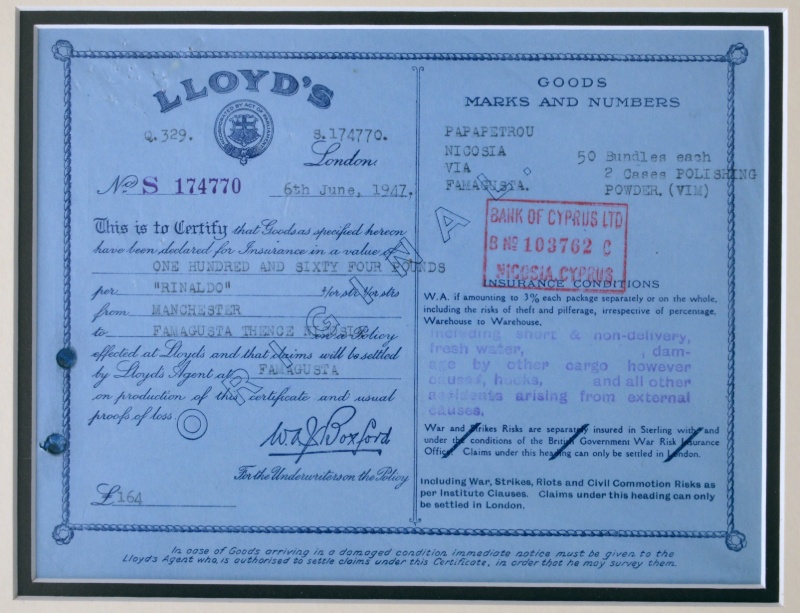 LLOYD'S
INCORPORATED BY ACT OF PARLIAMENT
Q.329. S.174770.
London,
No S 174770 6th June, 1947.
This is to Certify that Goods as specified hereon
have been declared for Insurance in a value of
ONE HUNDRED AND SIXTY FOUR POUNDS
per "RINALDO" &/or str &/or strs
from MANCHESTER
to FAMAGUSTA THENCE NICOSIA on a Policy
effected at Lloyd's and that claims will be settled
by Lloyd's Agent at FAMAGUSTA
on production of this certificate and usual
proofs of loss.
For the Underwriters on the Policy
£164
ORIGINAL.
GOODS
MARKS AND NUMBERS
PAPAPETROU
NICOSIA
VIA
FAMAGUSTA.
50 Bundles each
2 Cases POLISHING
POWDER. (VIM)
BANK OF CYPRUS LTD
B No 103762 C
NICOSIA, CYPRUS
INSURANCE CONDITIONS
W.A. if amounting to 3% each package separately or on the whole,
including the risks of theft and pilferage, irrespective of percentage.
Warehouse to Warehouse.
including short & non-delivery,
fresh water, , dam-
age by other cargo however
caused, hooks, and all other
accidents arising from external
causes.
War and Strikes Risks are separately insured in Sterling with and
under the conditions of the British Government War Risk Insurance
Office. Claims under this heading can only be settled in London.
Including War, Strikes, Riots and Civil Commotion Risks as
per Institute Clauses. Claims under this heading can only
be settled in London.
In case of Goods arriving in a damaged condition immediate notice must be given to the
Lloyd's Agent who is authorised to settle claims under this Certificate, in order that he may survey them.